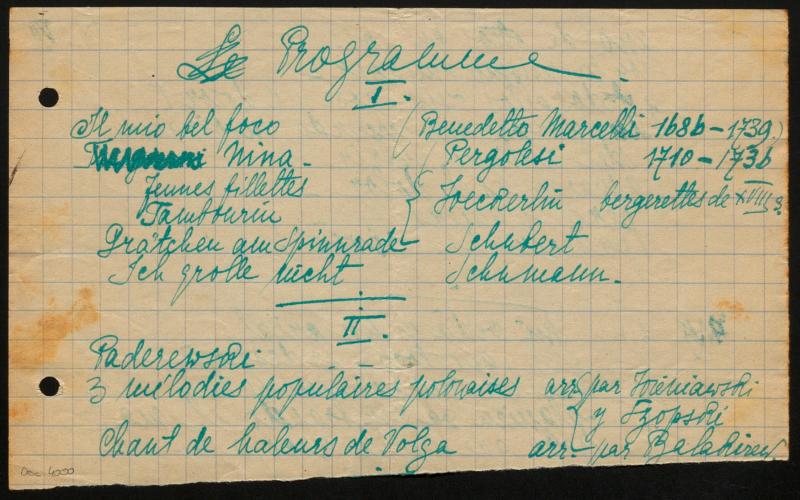 Le Programme
I.
Il mio bel foco (Benedetto Marcelli 1686-1739)
Nina- (Pergolesi 1710-1736
Jennes fillettes
Tambourin { Joeckerlin bergerettes de XVIII s.
Grätchen am Spinnrade Schubert
Ich grolle nicht Schumann.
II.
Paderewski
3 mélodies populaires polonaises arr. par Wieniawski
y Szopski
Chant de haleurs de Volga arr. par Balakirew
Doc. 4000